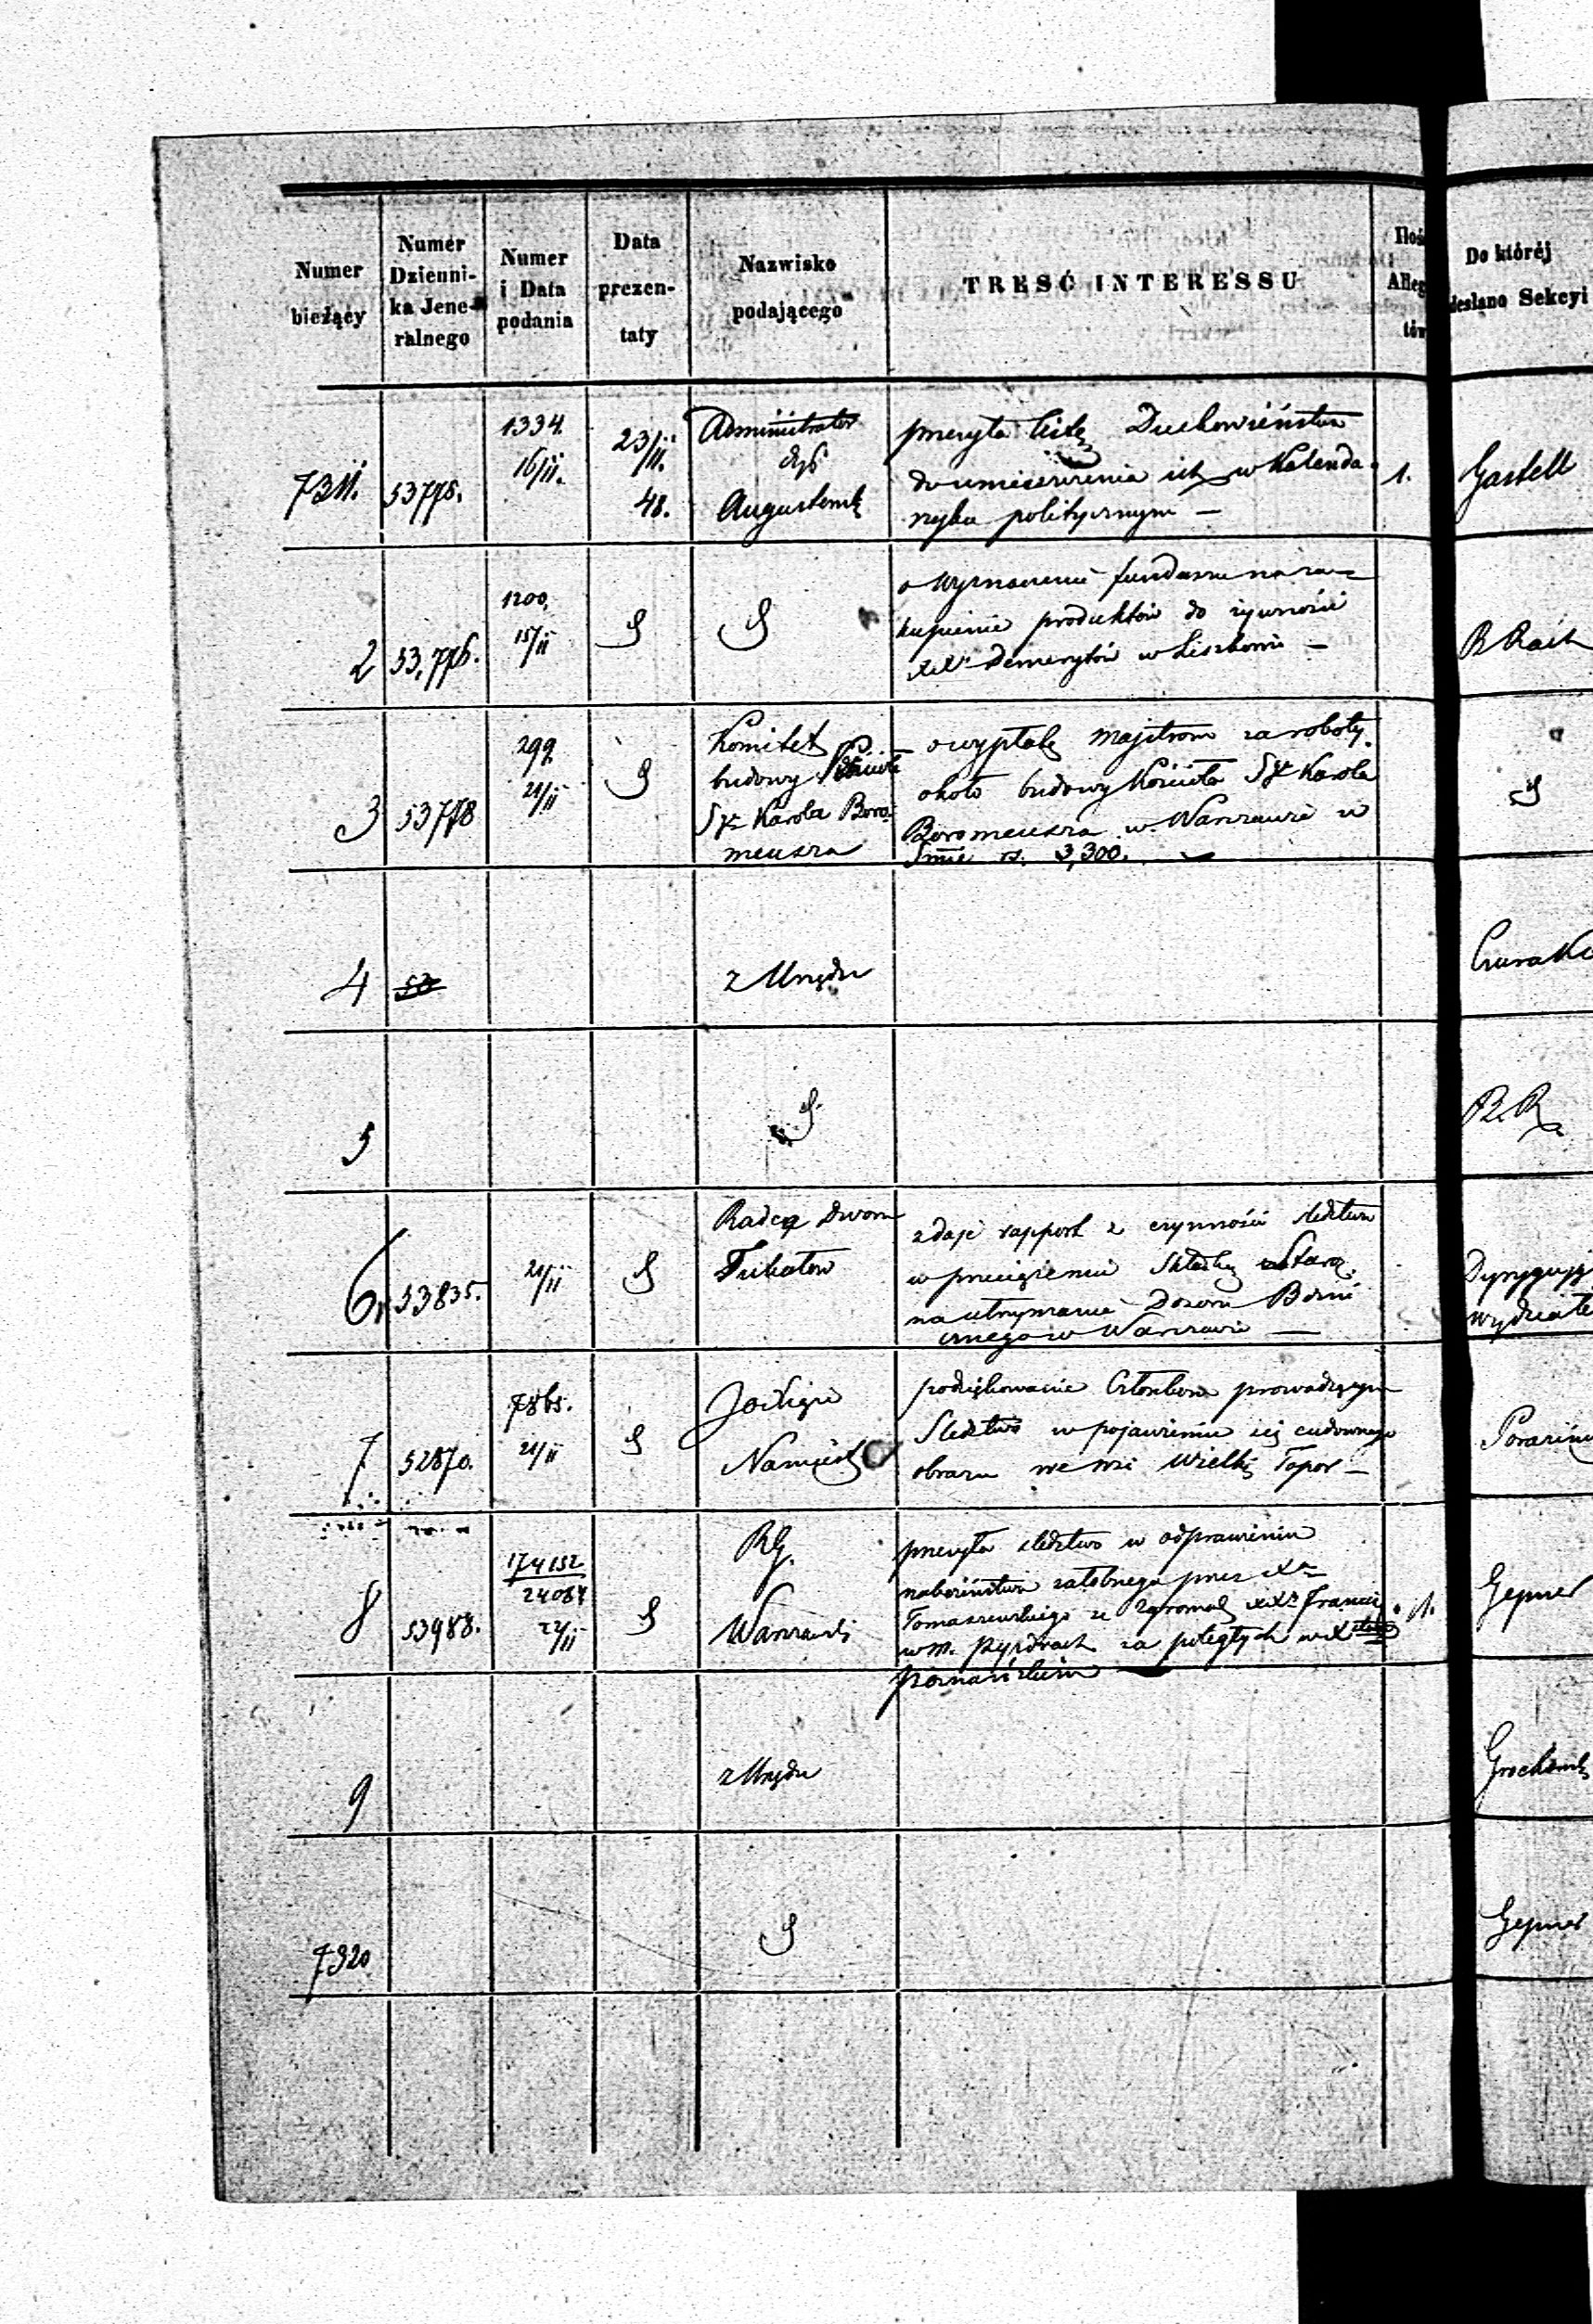 Numer bieżący
Numer Dziennika Jeneralnego
Numer i Data podania
Data prezentaty
Nazwisko podającego
TRESĆ INTERESSU
Do któréj
Sekcyi
7311.
53775.
1334.
16/11.
23/11.
48.
Administrator
dys
Augustowsk
przesyła listę Duchowieństwa
do umieszczenia ich w Kalenda-
rzyku politycznym —
1.
Gastell
2
53,776.
1200.
15/11
o wyznaczenie funduszu na za-
kupienie produktów do żywności
xx Demerytów w Liszkowie —
3
53778
299
21/11
Komitet
budowy Kościoła
Sgo Karola Boro-
meusza
o wypłatę majstrom za roboty
około budowy Kościoła Sgo Karola
Boromeusza w Warszawie w
Summie rs. 3,300.
4
z Urzędu
5
6
53835.
21/11
Radca Dworu
zdaje rapport z czynności śledztwa
w przeciążeniu składką
na utrzymanie Dozoru Bożni
cznego w Warszawie —
7
52870.
7865.
21/11
podziękowanie Członkom prowadzącym
Śledztwo w pojawieniu się cudownego
obrazu we wsi Wielki Topor —
8
53988.
174152
24084
22/11
RG.
Warszawski
przesyła śledztwo w odprawieniu
nabożeństwa żałobnego przez Xa
Tomaszewskiego ze Zgromadz xx Francisz
w m. Pyzdrach za poległych w X
Poznańskiem
1.
Gepner
9
z Urzędu
7320
Gepner